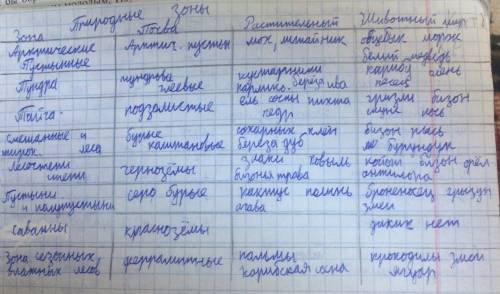 Природные зоны
Зона Почва Растительный Животный мир
Арктические Арктич. пустын мох, лишайник овцебык морж
Пустынные белый медведь
Тундра тундрово глеевые кустарники карлик. береза ива карибу олень песец
Тайга подзолистые ель сосны пихта кедр гризли бизон скунс лось
смешанные и широк. леса бурые каштановые сахарный клён береза дуб бизон рысь бурундук
лесостепи степи чернозёмы злаки ковыль бизонья трава койот бизон орёл антилопа
Пустыни и полупустыни серо бурые кактус полынь агава броненосец грызуны змеи
саванны краснозёмы диких нет
Зона сезонных влажных лесов ферраллитные пальмы карибская сосна крокодилы змеи ягуар